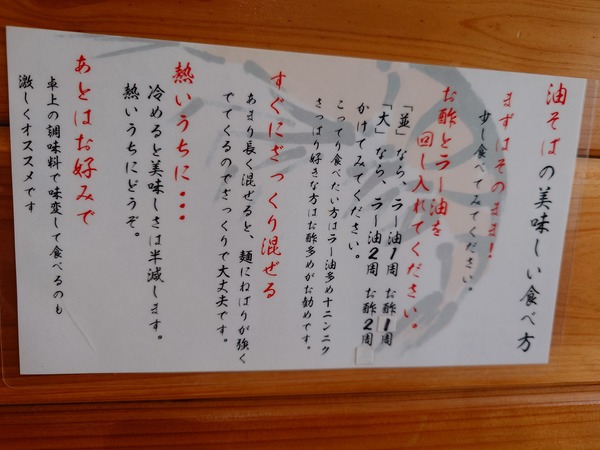 油そばの美味しい食べ方
まずはそのまま!
少し食べてみてください。
お酢とラー油を
回し入れてください。
「並」なら、ラー油1周 お酢1周
「大」なら、ラー油2周 お酢2周
かけてみてください。
こってり食べたい方はラー油多め＋ニンニク
さっぱり好きな方はお酢多めがお勧めです。
すぐにざっくり混ぜる
あまり長く混ぜると、麺にねばりが強く
でてくるのでざっくりで大丈夫です。
熱いうちに・・・
冷めると美味しさは半減します。
熱いうちにどうぞ。
あとはお好みで
卓上の調味料で味変して食べるのも
激しくオススメです